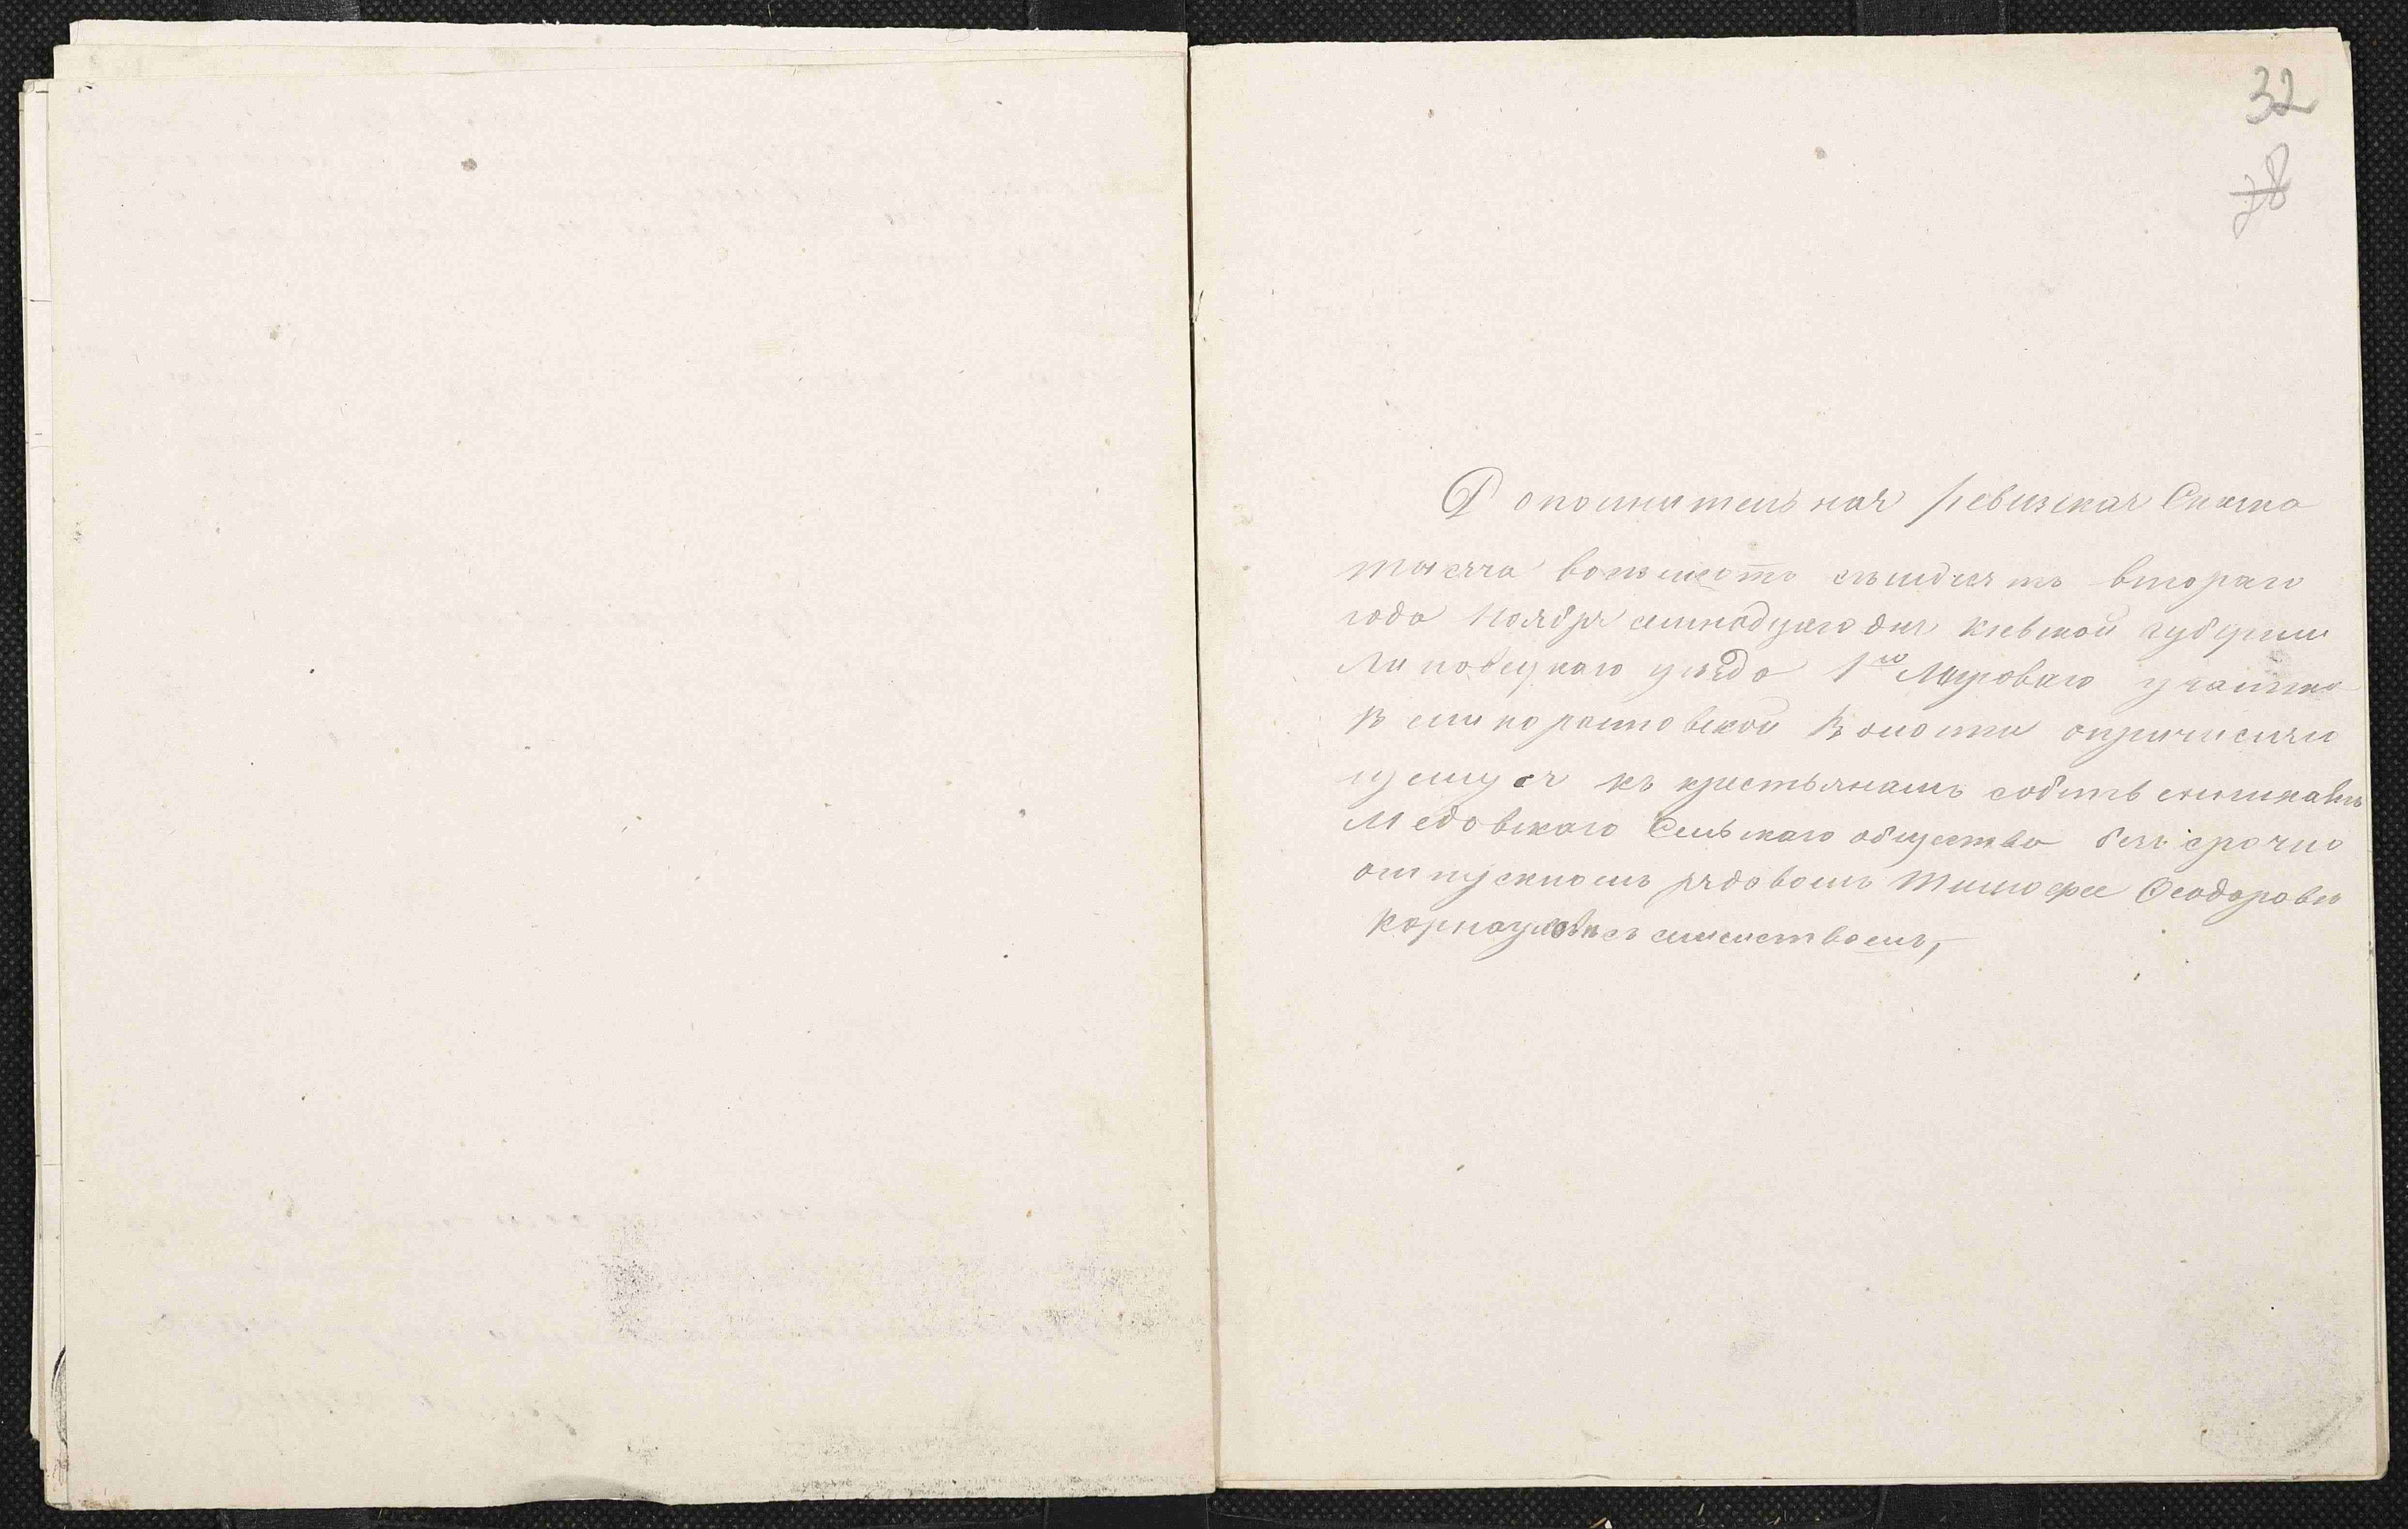 32
28
Дополнительная ревизская Сказка
тысяча восемьсотъ семьдесятъ втораго
года Ноября семнадцаго дня Кіевской губерніи
Липовецкаго уѣзда 1го Мироваго участка
Великоростовской Волости опричисляю
щемуся къ крестьянамъ собственникамъ
Медовскаго Сельскаго общества безсрочно
отпускномъ рядовомъ Тимофее Феодорове
Корнаухове съ семействомъ,